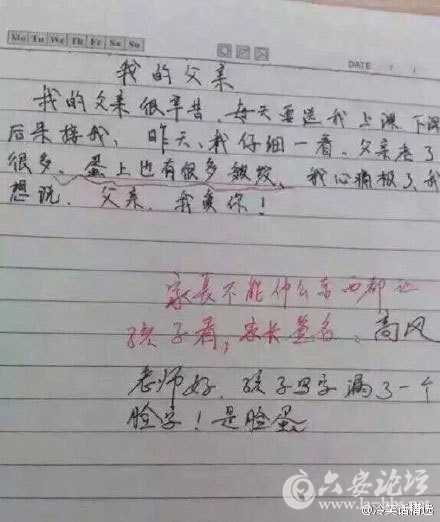 Mo Tu We Th Fr Sa Su
DATE / /
我的父亲
我的父亲很辛苦，每天要送我上课，下课
后来接我，昨天，我仔细一看，父亲老了
很多，蛋上也有很多皱纹，我心痛极了，我
想说，父亲，我爱你！
家长不能什么东西都让
孩子看，家长签名：高风
老师好，孩子写字漏了一个
脸字！是脸蛋
六安论坛
@冷笑话精选